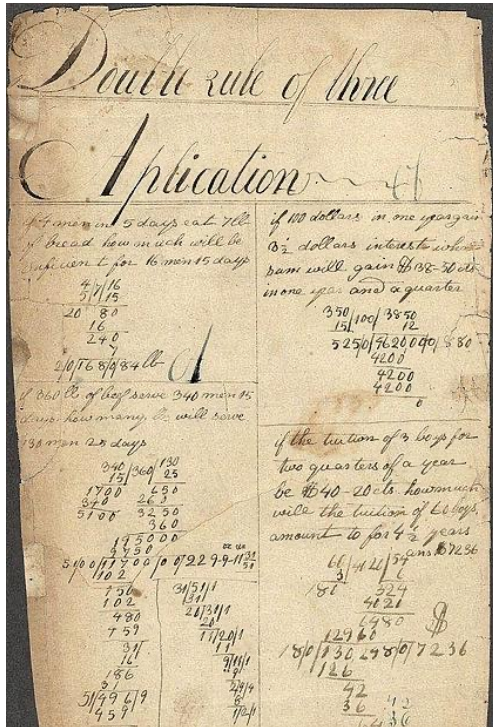 Double rule of three
Aplication 46
if 4 men in 5 days eat 7 lb
of bread how much will be
sufficient for 16 men 15 days
4/7/16
5/ /15
20 80
16
240
7
2/0/168/0/84 lb
if 360 lb of beef serve 340 men 15
days how many lbs will serve
130 men 25 days
340 /360/ 130
15 25
1700 650
340 260
5100 3250
360
195000
9750
102
150
102
480
459
31
16
186
31
51/496/9
459
31/51/1
31
20/31/1
20
11/20/1
11
9/11/1
9
2/9/4
8
1/2/1
if 100 dollars in one year gain
3½ dollars interest what
sum will gain $38-50 cts
in one year and a quarter
350 /100/ 3850
15 12
5250/4620000/880
4200
4200
4200
0
if the tuition of 3 boys for
two quarters of a year
be $40-20 cts how much
will the tuition of 60 boys
amount to for 4½ years
ans 7236
60 /4020/ 54
3 6
180 324
4020
6480
12960
18/0/130,248/0/7236
126
42
36